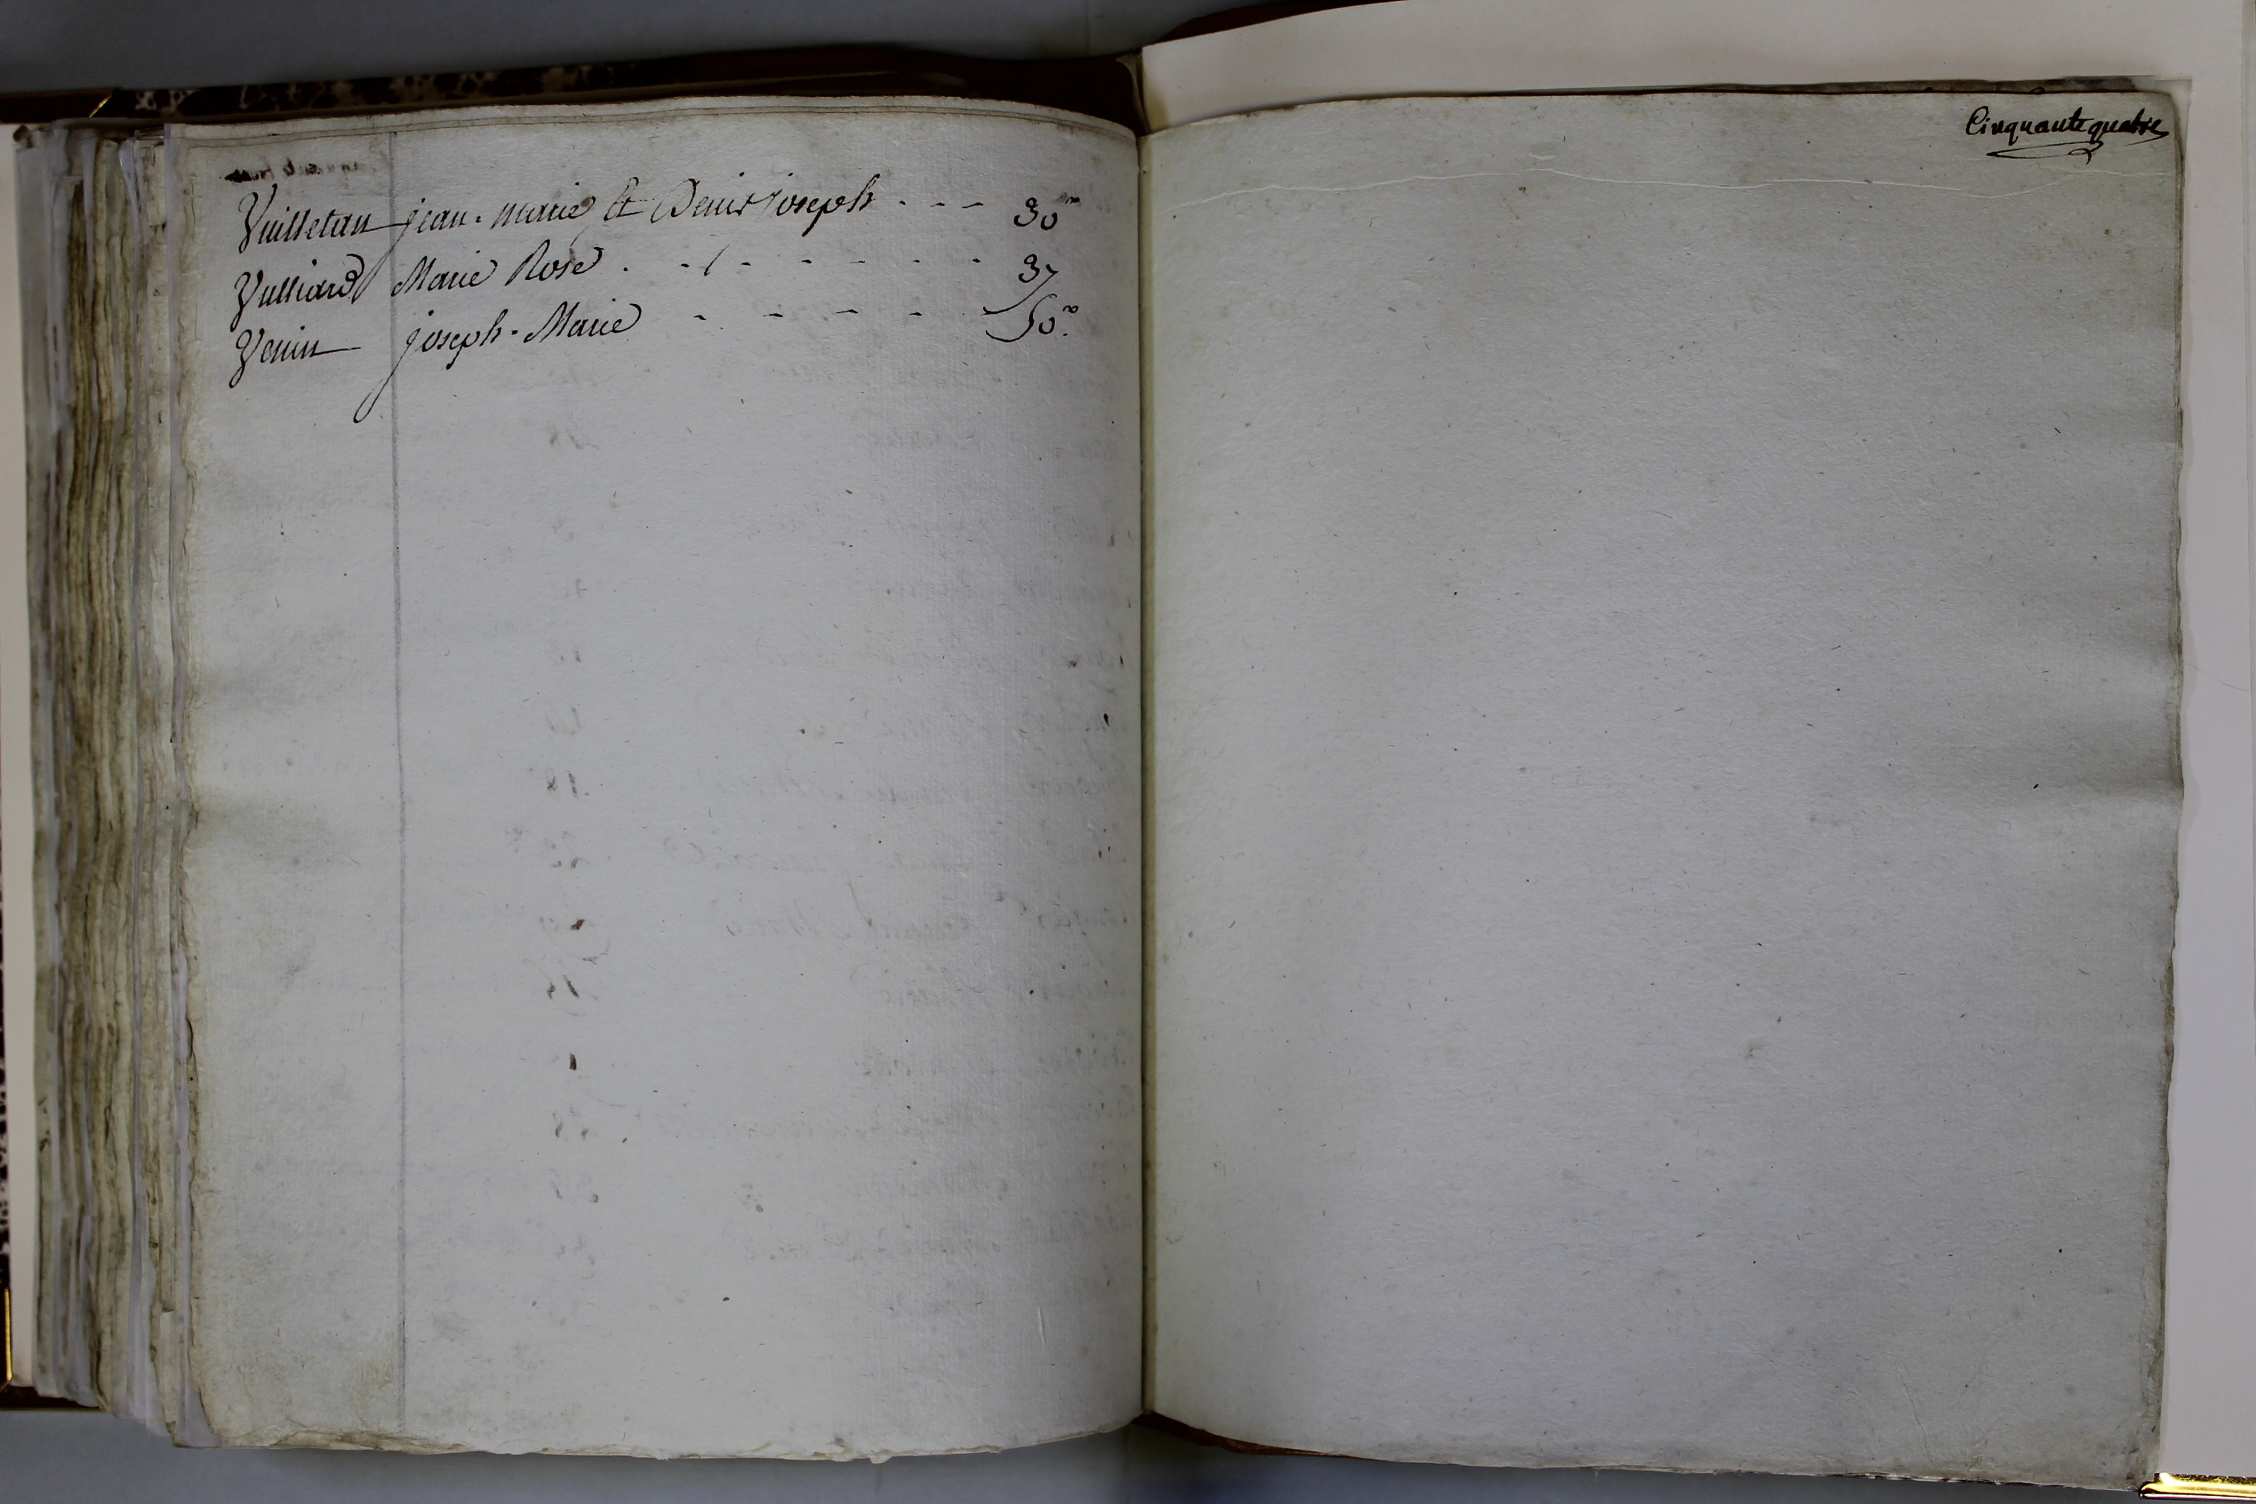 Vuilletan jean-marie & Denis joseph . - - - 30ro
Vulliard Marie Rose . - - - - - - - 37
Venin joseph-Marie - - - - - 50ro
Cinquante quatre